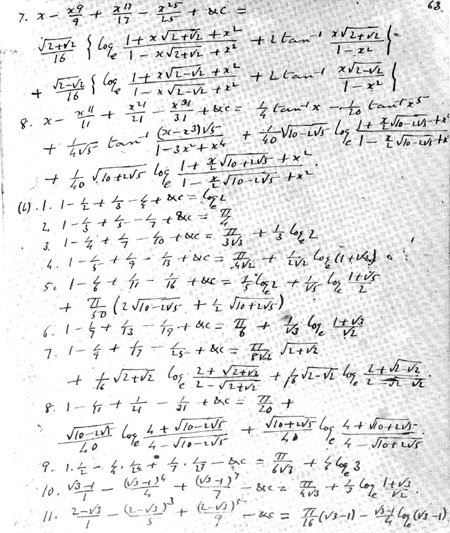 63.
7. x - x⁹/9 + x¹⁷/17 - x²⁵/25 + &c =
√(2+√2)/16 { logₑ (1 + x√(2+√2) + x²)/(1 - x√(2+√2) + x²) + 2 tan⁻¹ x√(2+√2)/(1-x²) }
+ √(2-√2)/16 { logₑ (1 + x√(2-√2) + x²)/(1 - x√(2-√2) + x²) + 2 tan⁻¹ x√(2-√2)/(1-x²) }
8. x - x¹¹/11 + x²¹/21 - x³¹/31 + &c = 1/4 tan⁻¹x - 1/20 tan⁻¹x⁵
+ 1/(4√5) tan⁻¹ (x-x³)√5/(1-3x²+x⁴) + 1/40 √(10-2√5) logₑ (1 + x/2 √(10-2√5) + x²)/(1 - x/2 √(10-2√5) + x²)
+ 1/40 √(10+2√5) logₑ (1 + x/2 √(10+2√5) + x²)/(1 - x/2 √(10+2√5) + x²).
1. 1 - 1/2 + 1/3 - 1/4 + &c = logₑ2
2. 1 - 1/3 + 1/5 - 1/7 + &c = π/4
3. 1 - 1/4 + 1/7 - 1/10 + &c = π/(3√3) + 1/3 logₑ2
4. 1 - 1/5 + 1/9 - 1/13 + &c = π/(4√2) + 1/(2√2) logₑ(1+√2)
5. 1 - 1/6 + 1/11 - 1/16 + &c = 1/5 logₑ2 + 1/√5 logₑ (1+√5)/2
+ π/50 (2√(10-2√5) + 1/2 √(10+2√5))
6. 1 - 1/7 + 1/13 - 1/19 + &c = π/6 + 1/√3 logₑ (1+√3)/√2
7. 1 - 1/9 + 1/17 - 1/25 + &c = π/(8√2) √(2+√2)
+ 1/16 √(2+√2) logₑ (2+√(2+√2))/(2-√(2+√2)) + 1/16 √(2-√2) logₑ (2+√(2-√2))/(2-√(2-√2)).
8. 1 - 1/11 + 1/21 - 1/31 + &c = π/20 +
√(10-2√5)/40 logₑ (4+√(10-2√5))/(4-√(10-2√5)) + √(10+2√5)/40 logₑ (4+√(10+2√5))/(4-√(10+2√5)).
9. &c = π/(6√3) + 1/4 logₑ3
10. (√3-1)/1 - (√3-1)⁴/4 + (√3-1)⁷/7 - &c = π/(4√3) + 1/3 logₑ (1+√3)/√2.
11. (2-√3)/1 - (2-√3)³/5 + (2-√3)⁵/9 - &c = π/16 (√3-1) - (√3-1)/4 logₑ(√3-1)